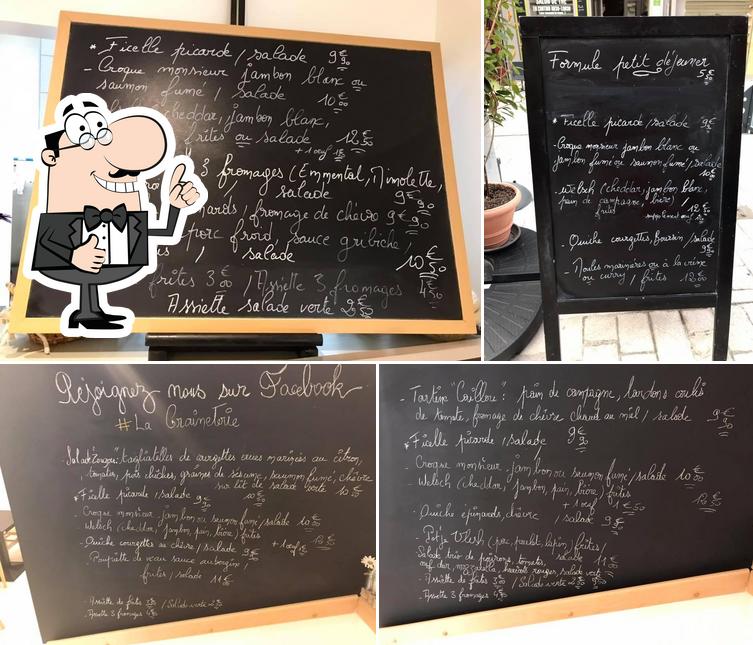 * Ficelle picarde / salade 9€90
- Croque monsieur jambon blanc ou
saumon fumé / Salade 10€00
cheddar, jambon blanc,
frites ou salade 12€50
+ 1 oeuf
3 fromages (Emmental, Mimolette,
/ salade 9€90
fromage de chèvre 9€90
porc froid, sauce gribiche,
/ salade 10€50
frites 3€00 / Assiette 3 fromages 4€50
Assiette salade verte 2€50
Formule petit déjeuner
5€90
* Ficelle picarde / salade 9€
- Croque monsieur jambon blanc ou
jambon fumé ou saumon fumé / salade
10€
- Welsch (cheddar, jambon blanc,
pain de campagne, bière) /
frites 12€50
supplément oeuf
- Quiche courgettes, Boursin / salade
9€
- Moules marinières ou à la crème
ou curry / frites 12€00
Rejoignez nous sur Facebook
#La Graineterie
tagliatelles de courgettes crues marinées au citron,
tomates, pois chiches, graines de sésame, saumon fumé, chèvre
sur lit de salade verte 10€50
* Ficelle picarde / salade 9€90
- Croque monsieur jambon ou saumon fumé / salade 10€00
- Welsch (cheddar, jambon, pain, bière) / frites
+ 1 oeuf 12€50
- Quiche courgettes au chèvre / salade 9€
- Paupiette de veau sauce aubergine /
frites / salade 11€
- Assiette de frites 3€00 / Salade verte 2€50
- Assiette 3 fromages 4€50
- Tartine "Caillou" : pain de campagne, lardons, coulis
de tomate, fromage de chèvre chaud au miel / salade 9€90
* Ficelle picarde / salade 9€90
- Croque monsieur jambon ou saumon fumé / salade 10€00
- Welsch (cheddar, jambon, pain, bière) / frites 12€50
+ 1 oeuf 1€50
- Quiche épinards, chèvre / salade 9€
- Potje Vlesh (porc, poulet, lapin) / frites /
salade 11€
Salade trio de poivrons, tomates,
oeuf dur, mozzarella, haricots rouges, salade verte 9€
- Assiette de frites 3€00 / Salade verte 2€50
- Assiette 3 fromages 4€50